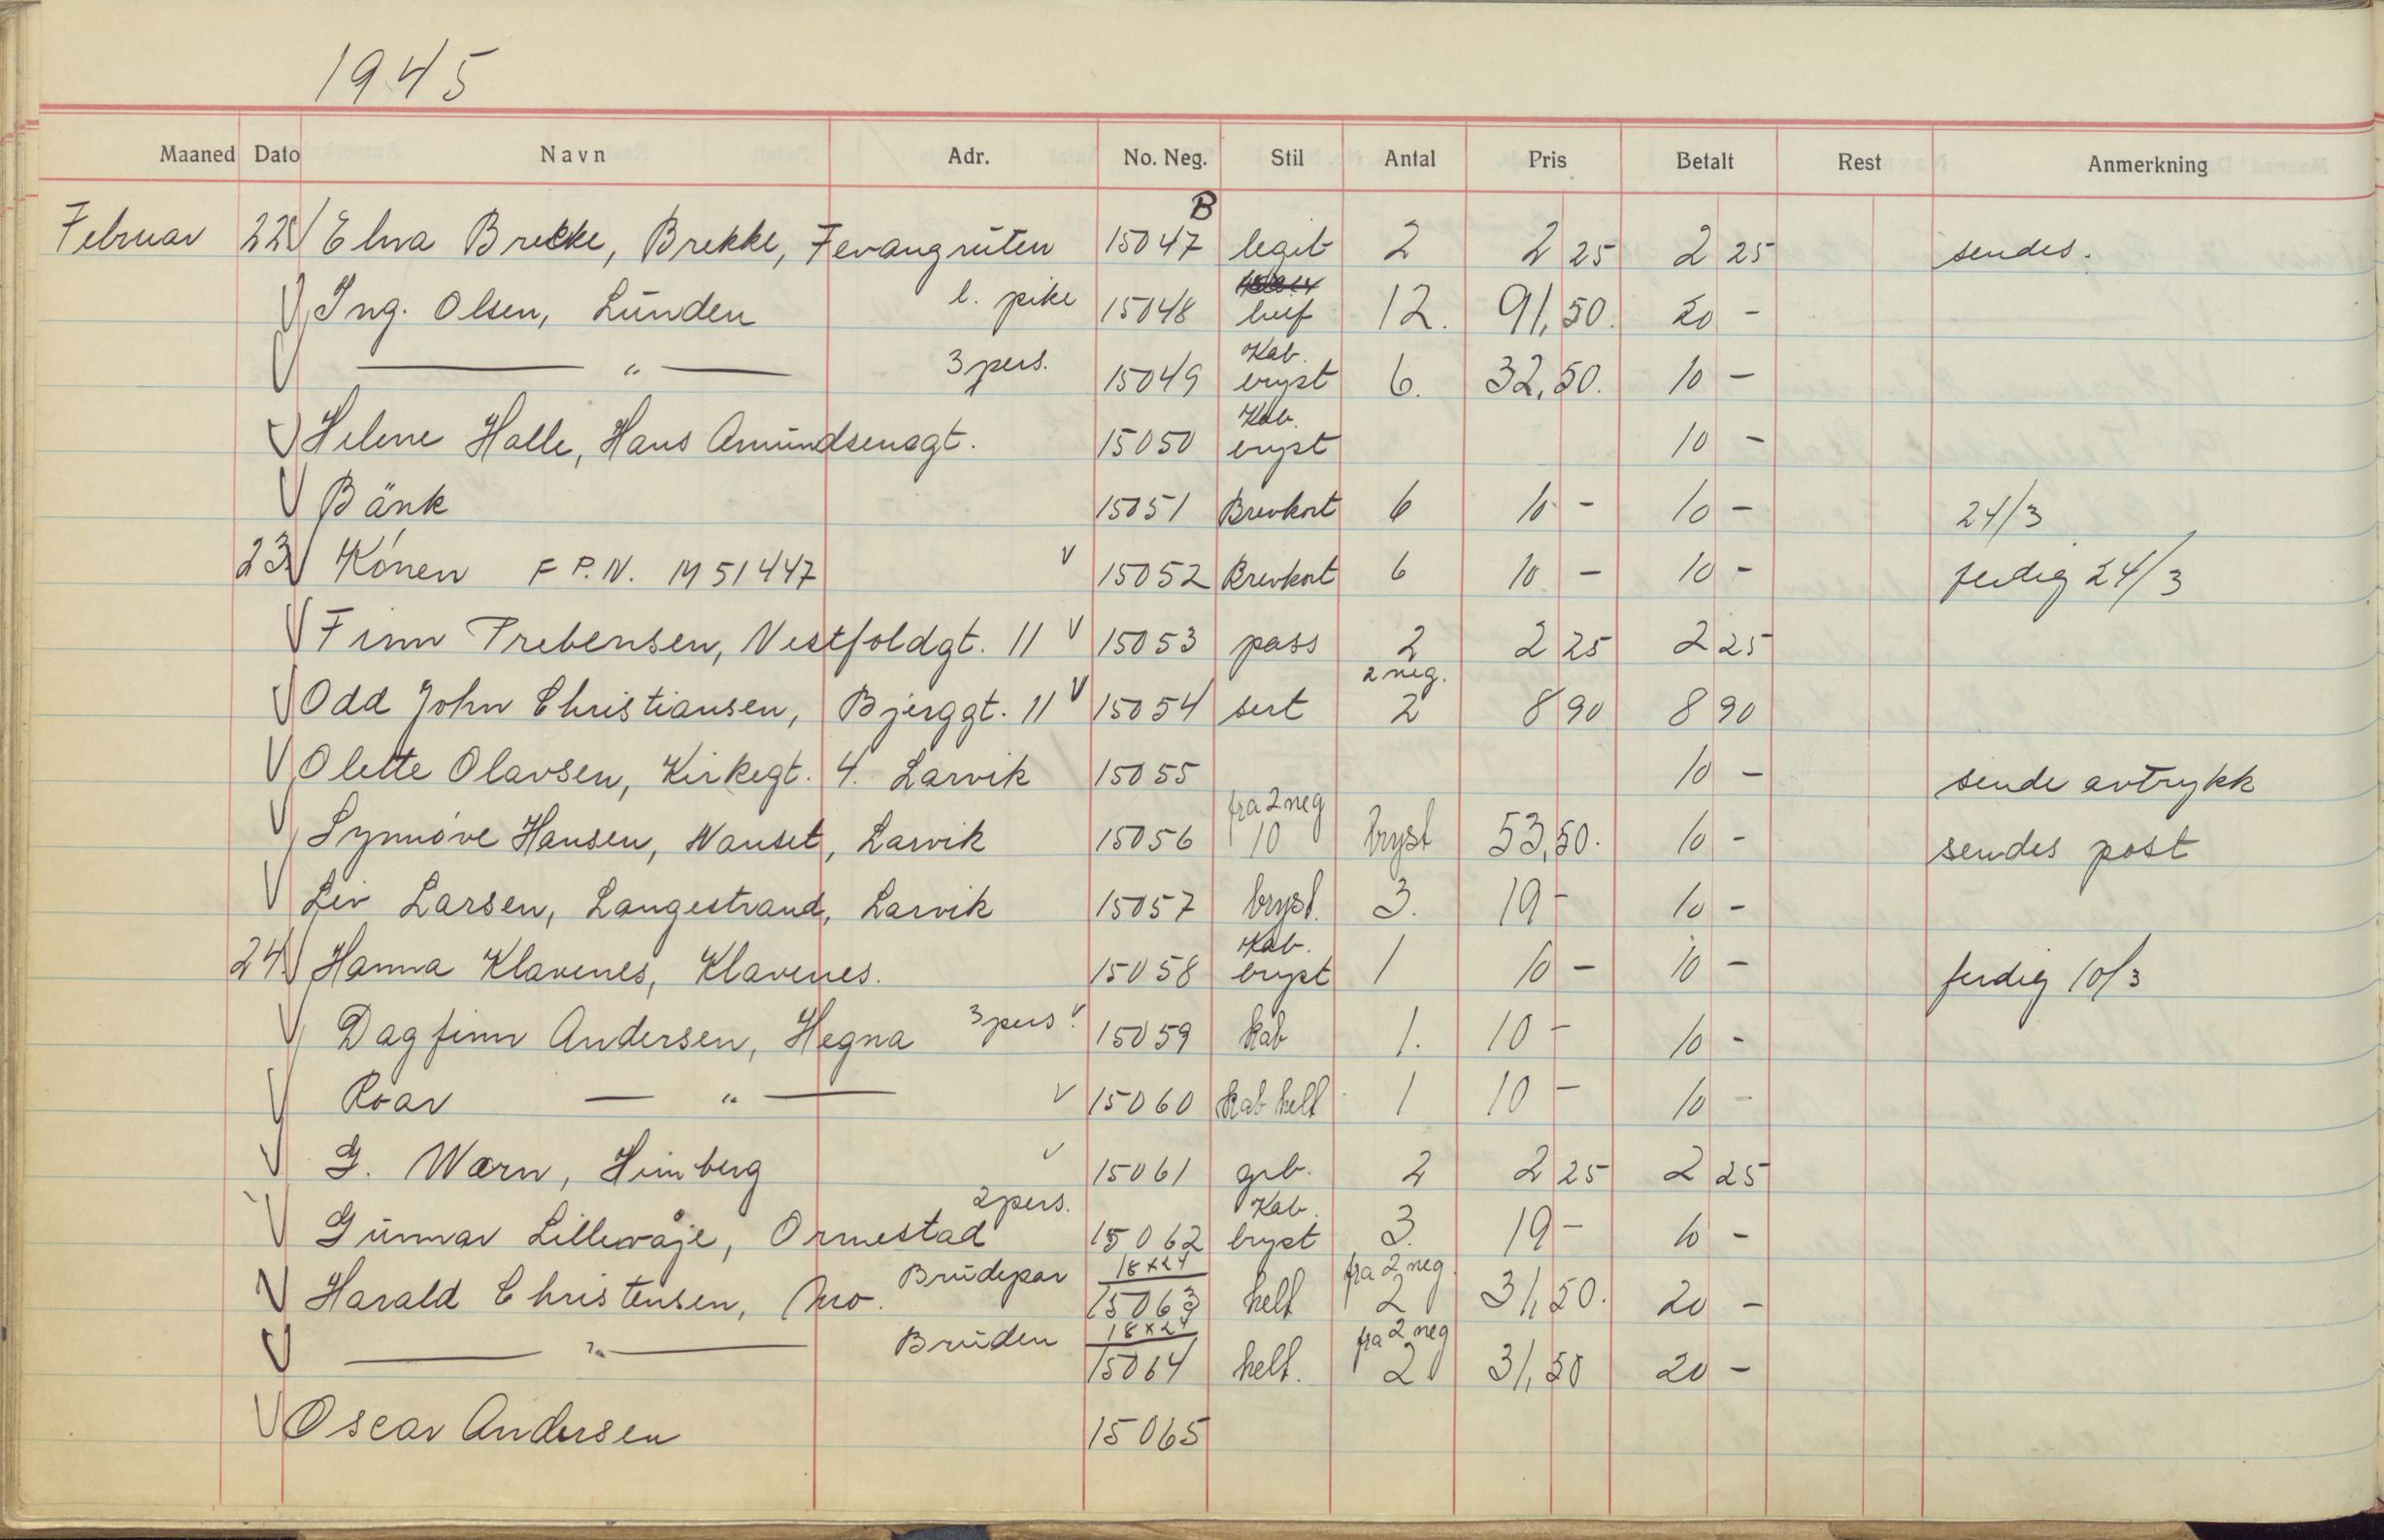 1945
Maaned Dato Navn Adr. No. Neg. Stil Antal Pris Betalt Rest Anmerkning
B
Februar 22 Elna Brekke, Brekke, Fevangruten 15047 legit 2 2 25 2 25 sendes.
Ing. Olsen, Lunden l. pike 15048 12. 91,50. 20 -
— " — 3 pers. 15049 Kab. bryst 6. 32,50. 10 -
Helene Halle, Hans Amundsensgt. 15050 Kab. bryst 10 -
Bänk 15051 Brevkort 6 10 - 10 - 24/3
23 Könen F P.N. M 51447 15052 Brevkort 6 10 - 10 - ferdig 24/3
Finn Prebensen, Vestfoldgt. 11 15053 pass 2 2 25 2 25
Odd John Christiansen, Bjerggt. 11 15054 sert 2 neg. 2 8 90 8 90
Olette Olavsen, Kirkegt. 4. Larvik 15055 10 - sende avtrykk
Synnöve Hansen, Nanset, Larvik 15056 fra 2 neg 10 bryst 53,50. 10 - sendes post
Liv Larsen, Langestrand, Larvik 15057 bryst. 3. 19 - 10 -
24. Hanna Klavenes, Klavenes. 15058 Kab. bryst 1 10 - 10 - ferdig 10/3
Dagfinn Andersen, Hegna 3 pers. 15059 kab 1. 10 - 10 -
Roar — " — 15060 kab helt 1 10 - 10 -
G. Wærn, Himberg 15061 grb. 2 2 25 2 25
Gunnar Lillevåje, Ormestad 2 pers. 15062 Kab. bryst 3. 19 - 10 -
Harald Christensen, Mo. Brudepar 18x24 15063 helt fra 2 neg. 2 31,50. 20 -
— " — Bruden 18x24 15064 helt. fra 2 neg 2 31,50 20 -
Oscar Andersen 15065